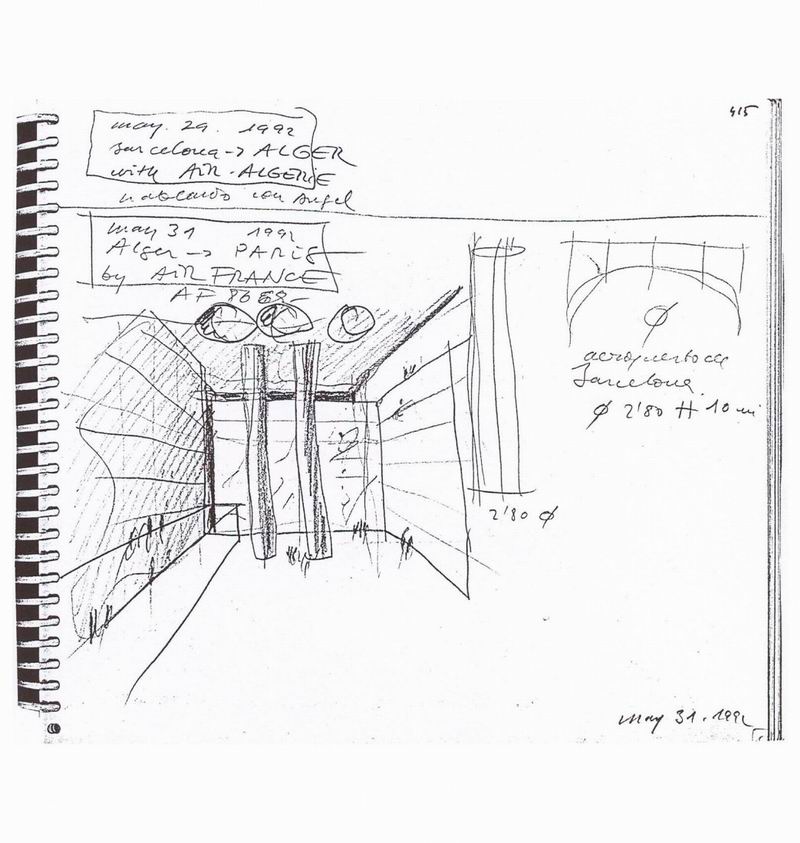 415
may. 29. 1992
Barcelona → ALGER
with AIR-ALGERIE
hablando con Angel
may 31 1992
Alger → PARIS
by AIR FRANCE
AF 8669-
Ø
aeropuerto de
Barcelona.
Ø 2'80 H 10 m
2'80 Ø
may 31. 1992